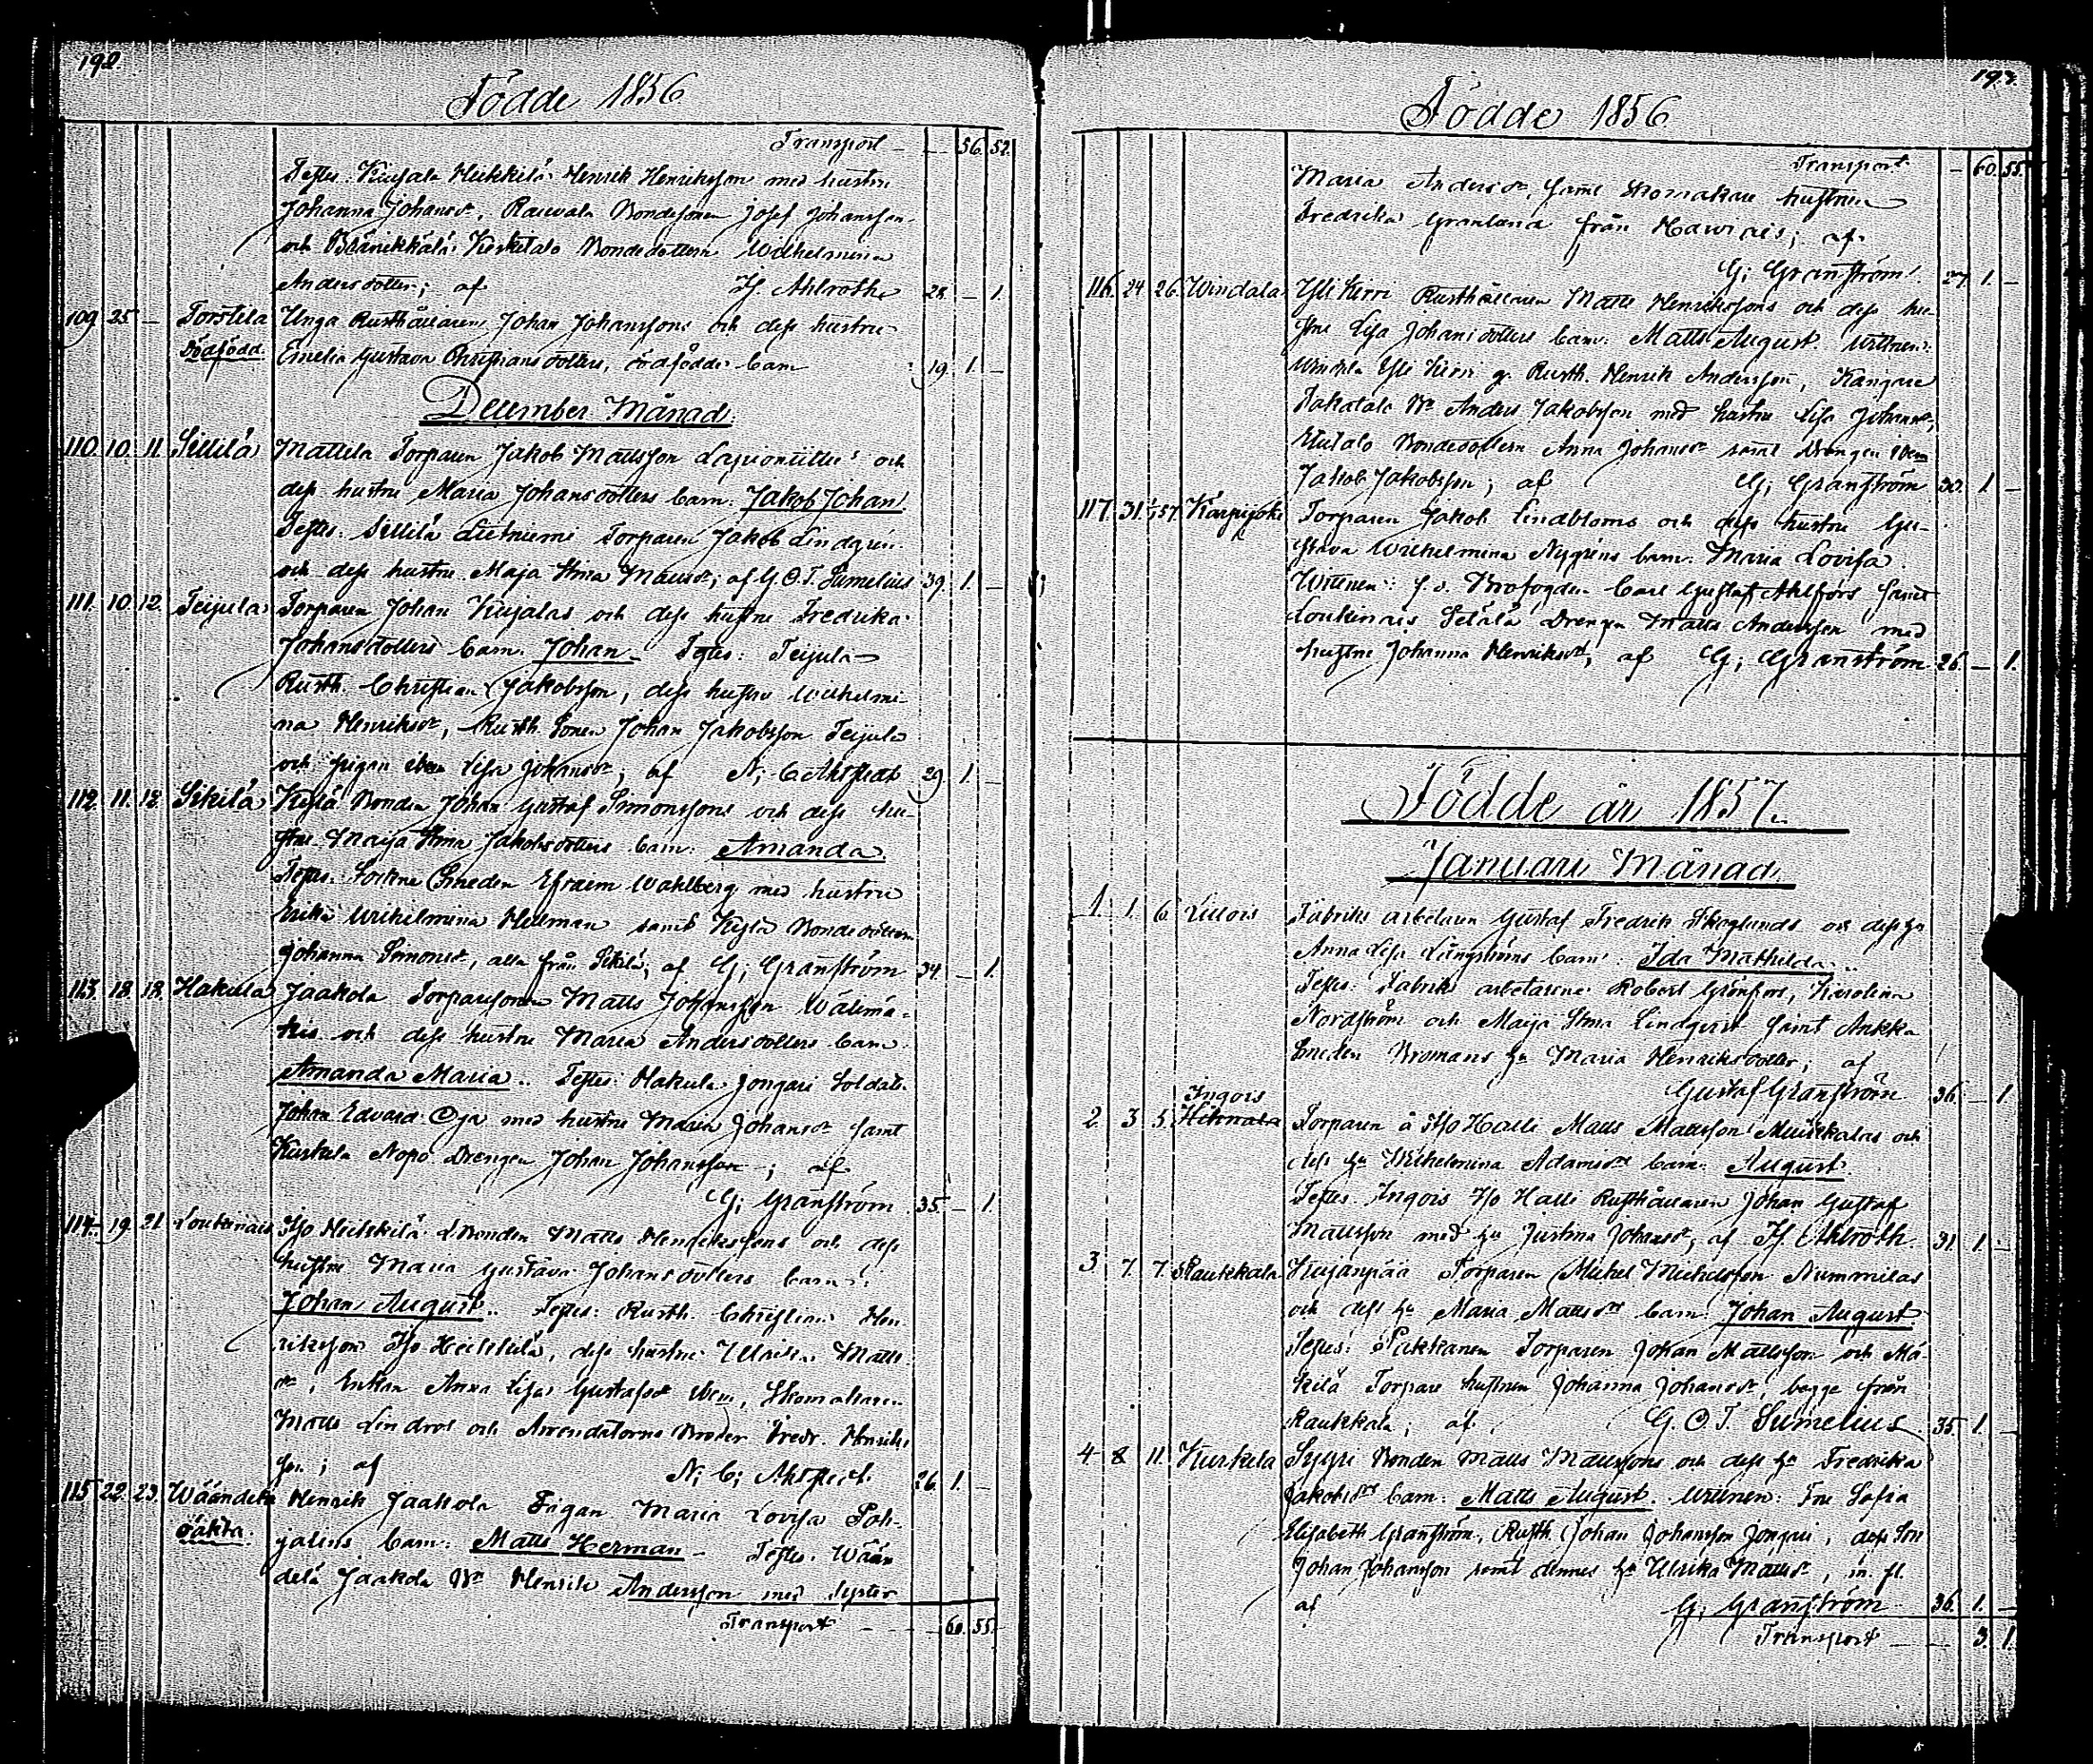 192.
Födde 1856
Transport - - 56. 52.
Testes: Kujala Heikkilä Henrik Henriksson med hustru
Johanna Johansdr, Bondesonen Josef Johansson
och Bränikkälä Bondedottern Wilhelmina
Andersdotter; af Hj Ahlroth 28. - 1.
109 25 - Torstela Unga Rusthållaren Johan Johanssons och dess hustru
dödfödd. Emelia Gustava Christiansdotters, dödfödde barn 19. 1. -
December Månad.
110. 10. 11. Sillilä Mattila Torparen Jakob Mattsson och
dess hustru Maria Johansdotters barn: Jakob Johan
Testes: Sillilä Torparen Jakob Lindgrén
och dess hustru Maja Stina Mattsdr; af G. O. T. Sumelius 39. 1. -
111. 10. 12. Teijula Torparen Johan Kujalas och dess hustru Fredrika
Johansdotters barn: Johan - Testes: Teijula
Rusth. Christian Jakobsson, dess hustru Wilhelmi-
na Henriksdr, Rusth. Sonen Johan Jakobsson Teijula
och pigan ibm Lisa Johansdr; af N: C: Ahlstedt 29. 1. -
112. 11. 12. Sikilä Kylä Bonden Johan Gustaf Simonssons och dess hu-
stru Maija Stina Jakobsdotters barn: Amanda
Testes: Sockne Smeden Efraem Wahlberg med hustru
Erika Wilhelmina Hellman samt Kylä Bondedottern
Johanna Simonsdr, alla från Sikilä; af G; Granström 34. - 1.
113. 18. 18. Hakula Jaakola Torparesonen Matts Johansson Wälimä-
kis och dess hustru Maria Andersdotters barn
Amanda Maria.. Testes: Hakula Jongari Soldat.
Johan Edvard Oja med hustru Maria Johansdr samt
Kurkela Nopo Drengen Johan Johansson; af
G; Granström 35. - 1.
114. 19. 21. Loukinais Iso Heikkilä Bonden Matts Henrikssons och dess
hustru Maria Gustava Johansdotters barn:
Johan August.. Testes: Rusth. Christian Hen-
riksson Iso Heikkilä, dess hustru Ulrika Matts-
dr, Enkan Anna Lisa Gustafsdr ibm, Skomakaren
Matts Lindros och Arrendatorns Broder Fredr. Henriks-
son; af N; C; Ahlstedt. 26. 1. -
115. 22. 23. Wäändelä Henrik Jaakola Pigan Maria Lovisa Poh-
oäkta. jalins barn: Matts Herman - Testes. Wään
delä Jaakola Bn Henrik Andersson med syster
Transport - - - 60. 55.
193.
Födde 1856
Transport - 60. 55.
Maria Andersdr, samt Skomakare hustrun
Fredrika Granlund från Hawinais; af
G; Granström! 27. 1. -
116. 24 26. Windala Yli Kirri Rusthållaren Matts Henrikssons och dess hu-
stru Lisa Johansdotters barn: Matts August. Wittnen:
Windala Yli Kirri g. Rusth. Henrik Andersson, Kangare
Bn Anders Jakobsson med hustru Lisa Johansdr,
Bondedottern Anna Johansdr samt Drengen ibm
Jakob Jakobsson; af G; Granström 30. 1. -
117. 31. 1/1 57. Karpijoki Torparen Jakob Lindbloms och dess hustru Gu-
stava Wilhelmina Nygréns barn: Maria Lovisa.
Wittnen: f. d. Brofogden Carl Gustaf Ahlfors samt
Loukinais Setälä Drengen Matts Andersson med
hustru Johanna Henriksdr; af G; Granström 26. - 1.
Födde år 1857.
Januari Månad.
1. 1. 6. Littois Fabriks arbetaren Gustaf Fredrik Skoglunds och dess hu
Anna Lisa Långströms barn: Ida Mathilda..
Testes: Fabriks arbetarene Robert Grönfors, Karolina
Nordström och Maija Stina Lindqvist samt Ankka
Smeden Bromans hu Maria Henriksdotter; af
Gustaf Granström 36. - 1
Ingois
2. 3 5. Hihnala Torparen å Iso Halli Matts Mattsson Muikkalas och
dess hu Wilhelmina Adamsdrs barn: August.
Testes: Ingois Iso Halli Rusthållaren Johan Gustaf
Mattsson med hu Justina Johansdr; af Hj Ahlroth. 31. 1. -
3 7. 7. Raukkala Kujanpää Torparen Mickel Mickelsson Nummilas
och dess hu Maria Mattsdrs barn: Johan August.
Testes: Pakkanen Torparen Johan Mattsson och Mä-
kilä Torpare hustrun Johanna Johansdr, begge från
Raukkala; af G. O. T. Sumelius 35. 1. -
4 8 11. Kurkela Syyri Bonden Matts Mattssons och dess hu Fredrika
Jakobsdrs barn: Matts August. Wittnen: Fru Sofia
Elisabeth Granström, Rusth. Johan Johansson Jongari, dess Son
Johan Johansson samt dennes hu Ulrika Mattsdr, m. fl.
af G; Granström 36. 1. -
Transport - - 3. 1.